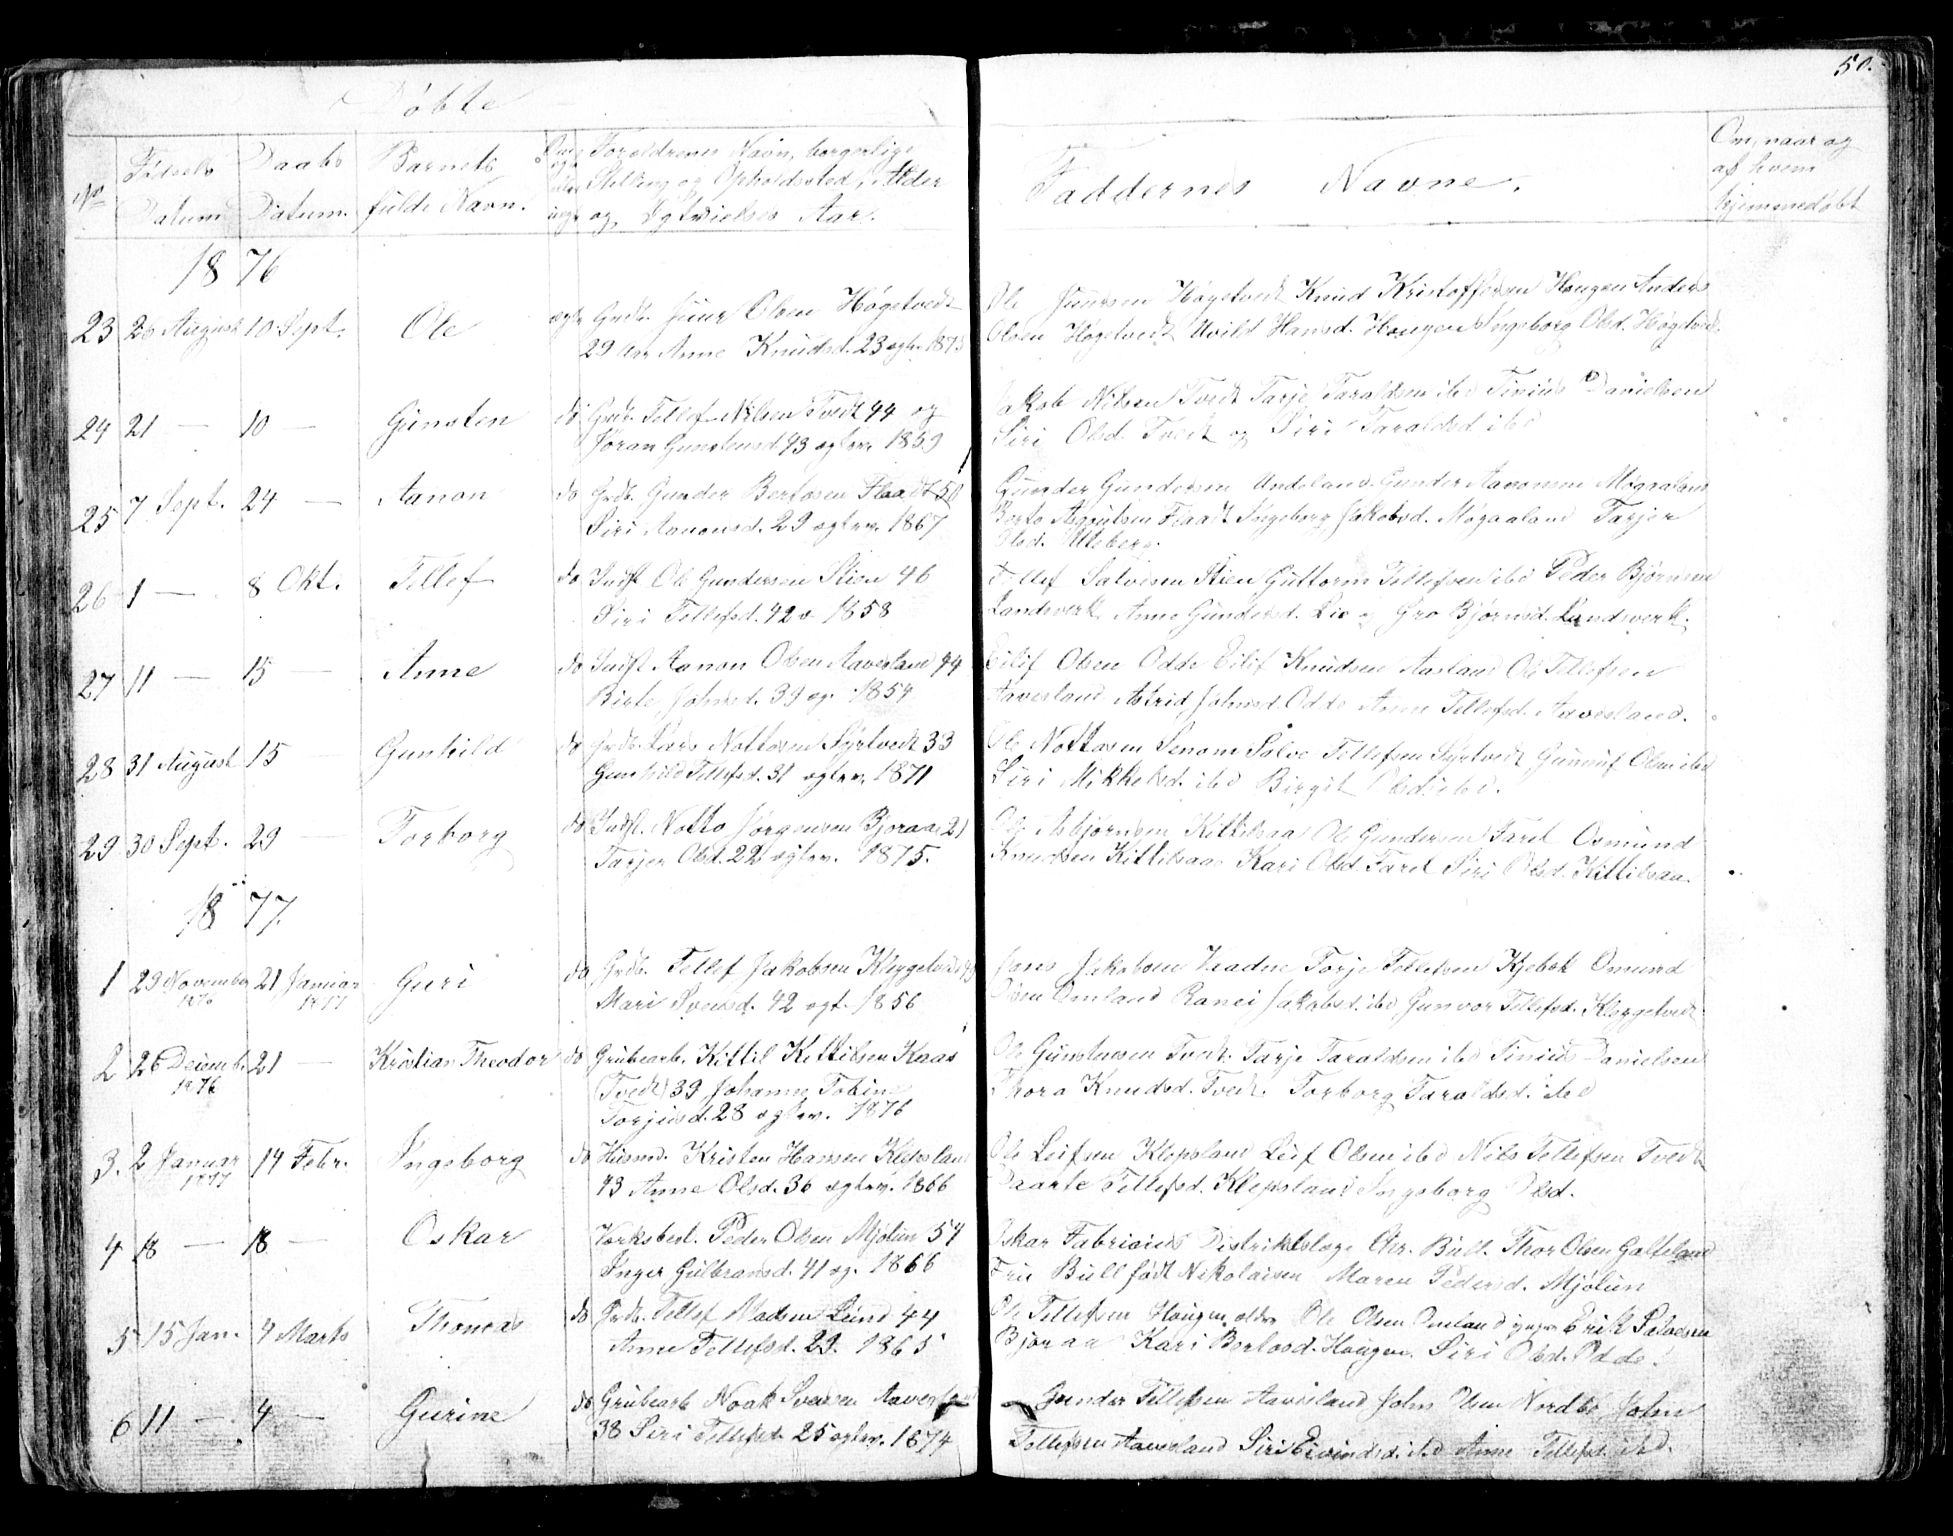 50.
Døbte
No
Fødsels Datum
Daabs Datum.
Barnets fulde Navn.
Forældrenes Navn, borgerlige
Stilling og Opholdssted, Alder
og Ægtvielses Aar.
Faddernes Navne.
Om, naar og
af hvem
hjemmedøbt
1876
23 20 August 10 Sept. Ole ægte Grdb. Juur Olsen Høgetvedt
29 Aar Anne Knudsd. 23 ægtv. 1875
Ole Juursen Høgetvedt Knud Kristoffersen Hougen Anders
Olsen Høgetvedt Hansd. Hougen Ingeborg Olsd. Høgetvedt
24 21 — 10 — Gunsten do Grdb. Tellef Nilsen Tvedt 44 og
Jøran Gunstensd. 43 ægtev. 1859
Jakob Nilsen Tvedt Tarje Taraldsen ibd Tinius Danielsen
Siri Olsd. Tvedt og Siri Taraldsd ibd
25 7 Sept. 24 — Aanon do Grdb. Gunder Bertosen Flaadt 50
Siri Aanonsd. 29 ægtev. 1867
Gunder Gundersen Undeland Gunder Aanonsen Møgaaland
Berto Flaadt Ingeborg Jakobsd. Møgaaland Tarjer
Olsd. Uleberg.
26 1 — 8 Okt. Tellef do Indst Ole Gundersen Stien 46
Siri Tellefsd. 42 æ 1858
Tellef Salvesen Stien Guttorm Tellefsen ibd Peder Bjørnsen
Landsverk Anne Gundersd. Lie og Gro Bjørnsd. Landsverk.
27 11 — 15 — Anne do Indst Aanon Olsen Aavesland 44
Birte Johnsd. 39 æg. 1854
Eilif Olsen Odde Eilif Knudsen Aasland Ole Tellefsen
Aavesland Astrid Johnsd. Odde Anne Tellefsd. Aavesland.
28 31 August 15 Gunhild do Grdb. Lars Nottosen Syrtvedt 33
Gunhild Tellefsd. 31 ægtev. 1871
Ole Nottosen Senom Salve Tellefsen Syrtvedt Gunuf Olsen ibd
Siri Mikkelsd. ibd Birgit Olsd ibd.
29 30 Sept. 29 — Torborg do Indst. Notto Jørgensen Bjoraa 21
Tarjer Olsd. 22 ægtev. 1875.
Ole Asbjørnsen Kittilsaa Ole Gundersen Faret Osmund
Knudsen Kittilsaa Kari Olsd. Faret Siri Olsd. Kittilsaa.
1877.
1 29 November 1876 21 Januar 1877 Guri do Grdb. Tellef Jakobsen Kleggetvedt 49
Mari Svensd. 42 ægt. 1856
Jens Jakobsen Vaadne Torje Tellefsen Kjebek Omund
Olsen Omland Ranei Jakobsd. ibd Gunvor Tellefsd. Kleggetvedt
2 26 Decemb. 1876 21 — Kristian Theodor do Grubearb. Kittil Kittilsen Kaas
(Tvedt) 39 Johanne Tobine
Torjusd. 28 ægtev. 1876
Ole Gunstensen Tvedt Tarje Taraldsen ibd Tinius Danielsen
Thora Knudsd. Tvedt Torborg Taraldsd. ibd
3. 2 Januar 1877 14 Febr. Ingeborg do Husmd. Kristen Hansen Klepsland
43 Anne Olsd. 36 ægtev. 1866
Ole Leifsen Klepsland Leif Olsen ibd Nils Tellefsen Tvedt
Tellefsd. Klepsland Ingeborg Olsd.
4 18 — 18 — Oskar Værksbest. Peder Olsen Mjølun 54
Inger Gulbransd. 41 æg. 1866
Oskar Fabricius Distriktslæge Chr. Bull. Thor Olsen Galteland
Fru Bull født Nikolaisen Maren Pedersd. Mjølun
5 15 Jan. 4 Marts Thomas do Grdb. Tellef Madsen Lund 44
Anne Tellefsd. 29. 1865
Ole Tellefsen Hougen ældre Ole Olsen Omland yngre Erik Salvesen
Bjoraa Kari Bertosd. Hougen. Siri Olsd. Odde.
6 11 — 4 — Gurine do Grubearb Noak Svensen Aavesland
38 Siri Tellefsd. 25 ægtev. 1874
Gunder Tellefsen Aavesland John Olsen Nordbø John
Tellefsen Aavesland Siri Eivindsd. ibd Anne Tellefsd. ibd.